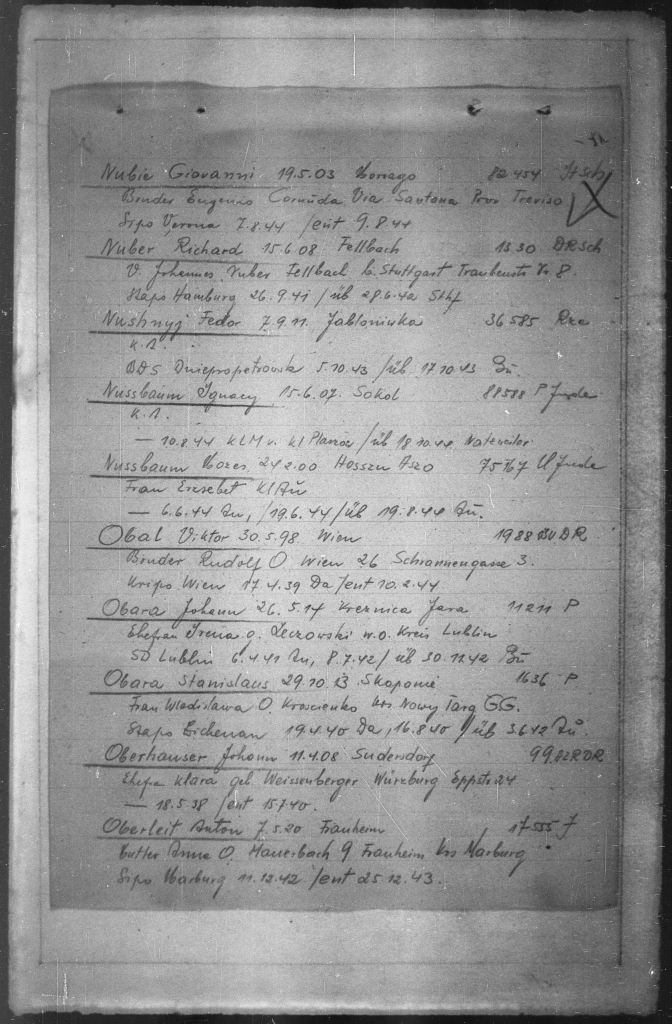 Nubie Giovanni 19.5.03 Mornago 82 454 It Sch
Bruder Eugenio Cornuda Via Santana Prov Treviso
Sipo Verona 7.8.44 /ent 9.8.44
Nuber Richard 15.6.08 Fellbach 1330 DR Sch
V. Johannes Nuber Fellbach b. Stuttgart Traubenstr Nr 8.
Stapo Hamburg 26.9.41 /üb 28.6.42 Sthf
Nushnyj Fedor 7.9.11. Jabloniwka 36 585
K.A.
BDS Dniepropetrowsk 5.10.43 /üb 17.10.43 Bu.
Nussbaum Ignacy 15.6.07. Sokol 88588 P Jude
K.A.
— 10.8.44 KLM v. Kl Plaszow /üb 18.10.44 Natzweiler
Nussbaum Mozes 24.2.00 Hosszu Aszo 75767 U Jude
Frau Erzsebet Kl Au
— 6.6.44 Au, /19.6.44 /üb 19.8.44 Au.
Obal Viktor 30.5.98 Wien 1988 BV DR
Bruder Rudolf O. Wien 26 Schrannengasse 3.
Kripo Wien 17.4.39 Da /ent 10.2.44
Obara Johann 26.5.14 Kreznica Jara 11211 P
Ehefrau Irena g. Leczowski w.o. Kreis Lublin
SD Lublin 6.4.41 Au, 8.7.42 / üb 30.11.42 Bu
Obara Stanislaus 29.10.13 1636 P
Frau Wladislawa O. Kroscienko Krs Nowy Targ GG.
Stapo 19.4.40 Da, 16.8.40 / üb 3.6.42 Au.
Oberhauser Johann 11.4.08 Sudersdorf DR
Ehefra Klara geb Weissenberger Würzburg Eppstr 24
— 18.5.38 /ent 15.7.40.
Oberleit Anton 7.5.20 Frauheim 17555 J
Mutter Anna O. Hauerbach 9 Frauheim Krs Marburg
Sipo Marburg 11.12.42 /ent 25.12.43.